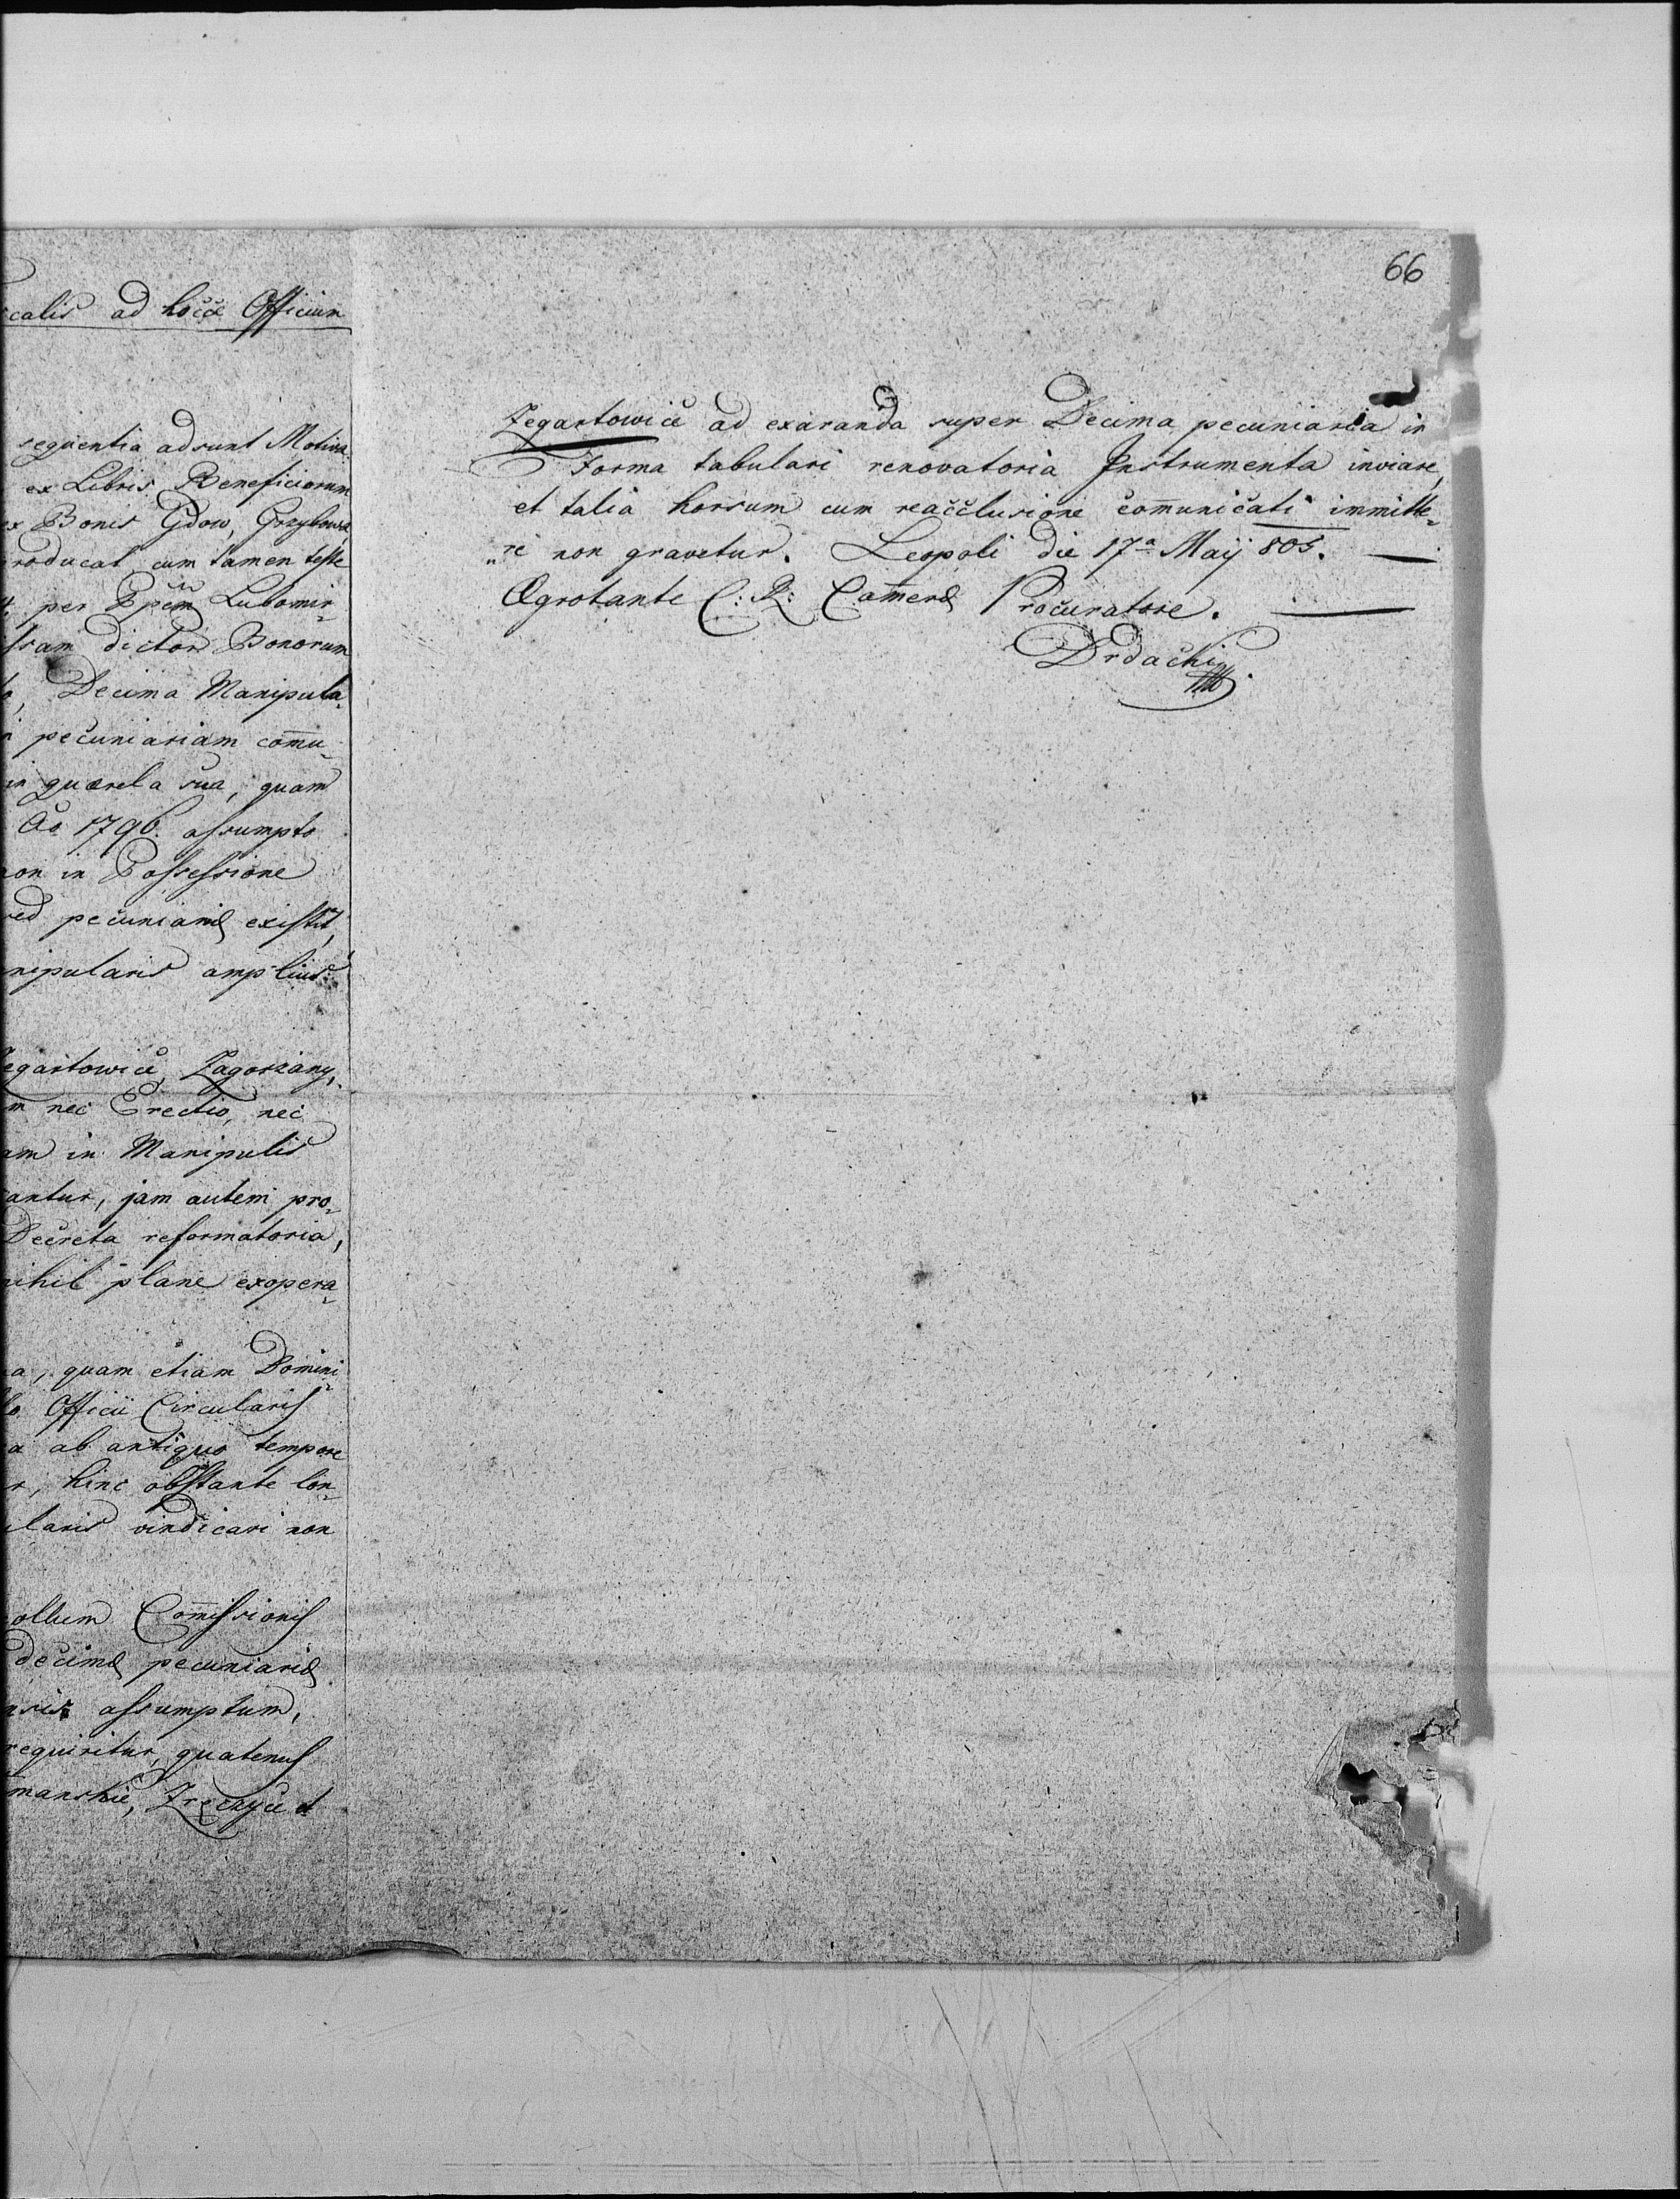 calis ad hocce Officium
sequentia adsunt Motiva
ex Libris Beneficiorum
ex Bonis Gdow, Grzybowa
roducat cum tamen teste
per Ppem Lubomir-
ssam dictor Bonorum
Decima Manipula-
pecuniariam commu-
in quærela sua, quam
Ao 1796. assumpto
non in Possessione
sed pecuniariæ existit,
nipularis amplius
egartowice, Zagorzany,
m nec Erectio, nec
am in Manipulis
antur, jam autem pro-
Decreta reformatoria,
nihil plane exopera-
a, quam etiam Domini-
lo Officii Circularis
a ab antiquo tempore
r, hinc obstante lon-
ularis vindicari non
collum Commissionis
decimæ pecuniariæ
nsis assumptum,
requiritur, quatenus
manskie, Zręczyce et
66
Zegartowice ad exaranda super Decima pecuniaria in
Forma tabulari renovatoria Instrumenta inviare,
et talia horsum cum reacclusione communicati immitte-
re non gravetur. Leopoli die 17a Maij 805.
Ægrotante C: R: Cameræ Procuratore.
Drdacki